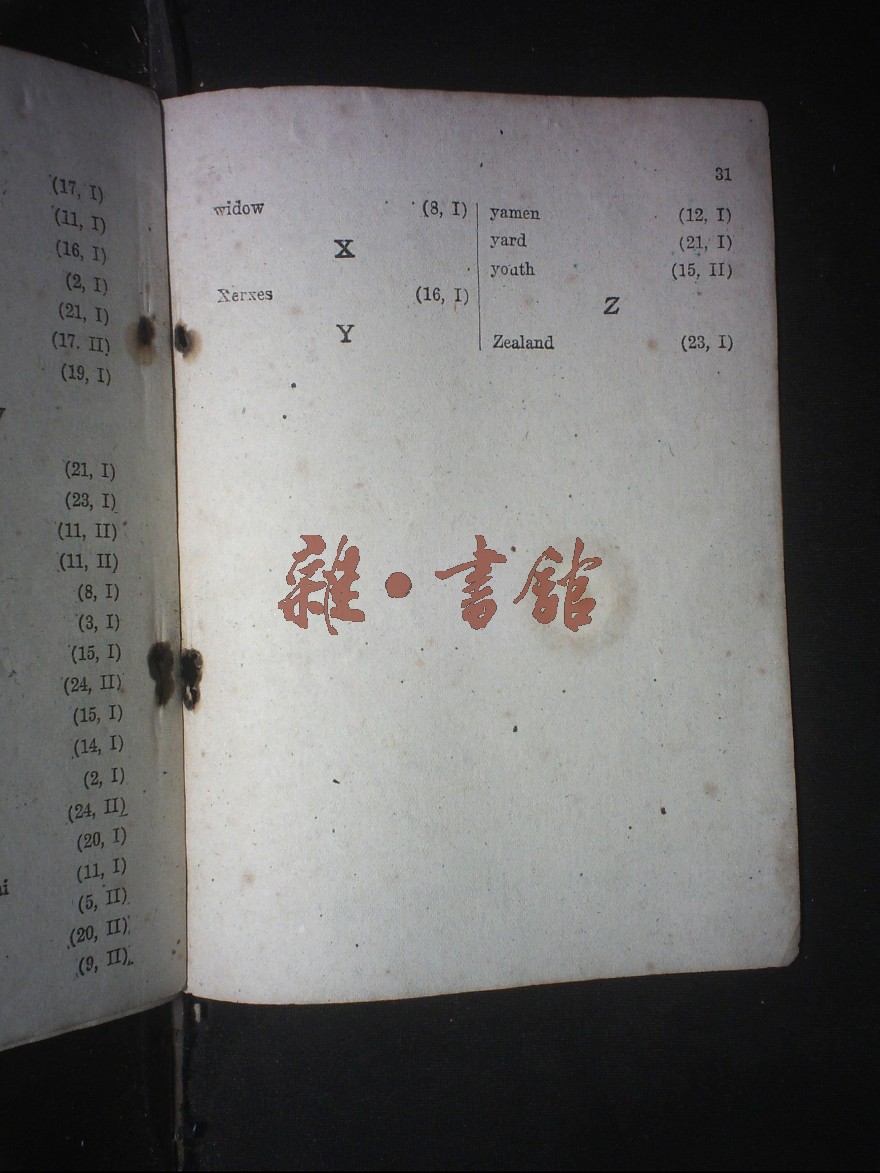 (17, I)
(11, I)
(16, I)
(2, I)
(21, I)
(17. II)
(19, I)
(21, I)
(23, I)
(11, II)
(11, II)
(8, I)
(3, I)
(15, I)
(24, II)
(15, I)
(14, I)
(2, I)
(24, II)
(20, I)
(11, I)
(5, II)
(20, II)
(9, II)
31
widow (8, I)
X
Xerxes (16, I)
Y
yamen (12, I)
yard (21, I)
youth (15, II)
Z
Zealand (23, I)
雜·書館